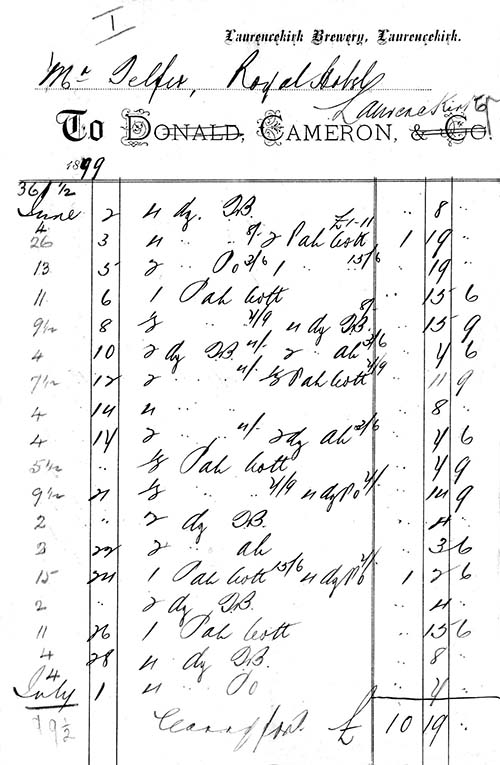 I
Laurencekirk Brewery, Laurencekirk.
Mr Telfer, Royal Hotel
Laurencekirk
To DONALD, CAMERON, & Co.
1899
36 1/2
June 2 4 dz. T.B. .. 8 ..
4
26 3 4 .. .. 8/ 2 Pah Cott £1-11 1 19 ..
13 5 2 .. Po 3/6 1 .. .. 15/6 .. 19 ..
11 6 1 Pah Cott .. 15 6
9 1/2 8 1/2 .. .. 7/9 4 dz T.B. 8/ .. 15 9
4 10 2 dz T.B. 4/. 2 .. ah 2/6 .. 4 6
7 1/2 12 2 .. .. 4/. 1/2 Pah Cott 7/9 .. 11 9
4 14 4 .. .. .. 8 ..
4 14 2 .. .. 4/. 2 dz ah 2/6 .. 4 6
5 1/2 .. 1/2 Pah Cott .. 7 9
9 1/2 21 1/2 .. .. 7/9 4 dz Po 7/. .. 14 9
2 .. 2 dz T.B. .. 4 ..
3 22 2 .. ah .. 3 6
15 24 1 Pah Cott 15/6 4 dz Po 7/ 1 2 6
2 .. 2 dz T.B. .. 4 ..
11 26 1 Pah Cott .. 15 6
4 28 4 dz T.B. .. 8 ..
4
July 1 4 .. Po .. 7 ..
79 1/2 Carrd ford. £ 10 19 ..